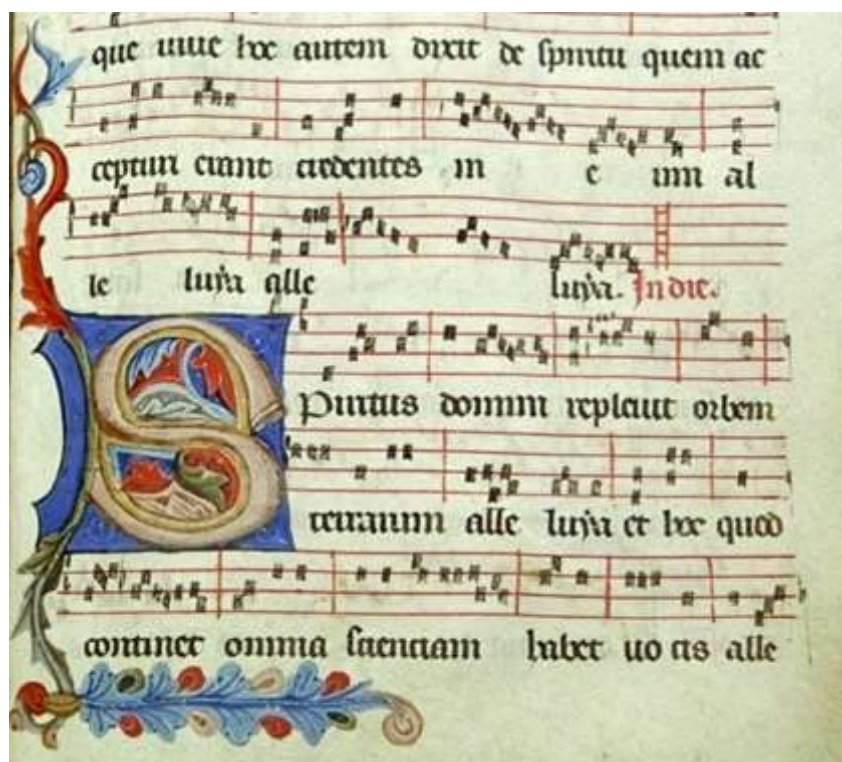 que uiue hoc autem dixit de spiritu quem ac
cepturi erant credentes in e um al
le luya alle luya. In die.
Spiritus domini repleuit orbem
terrarum alle luya et hoc quod
continet omnia scienciam habet uo cis alle